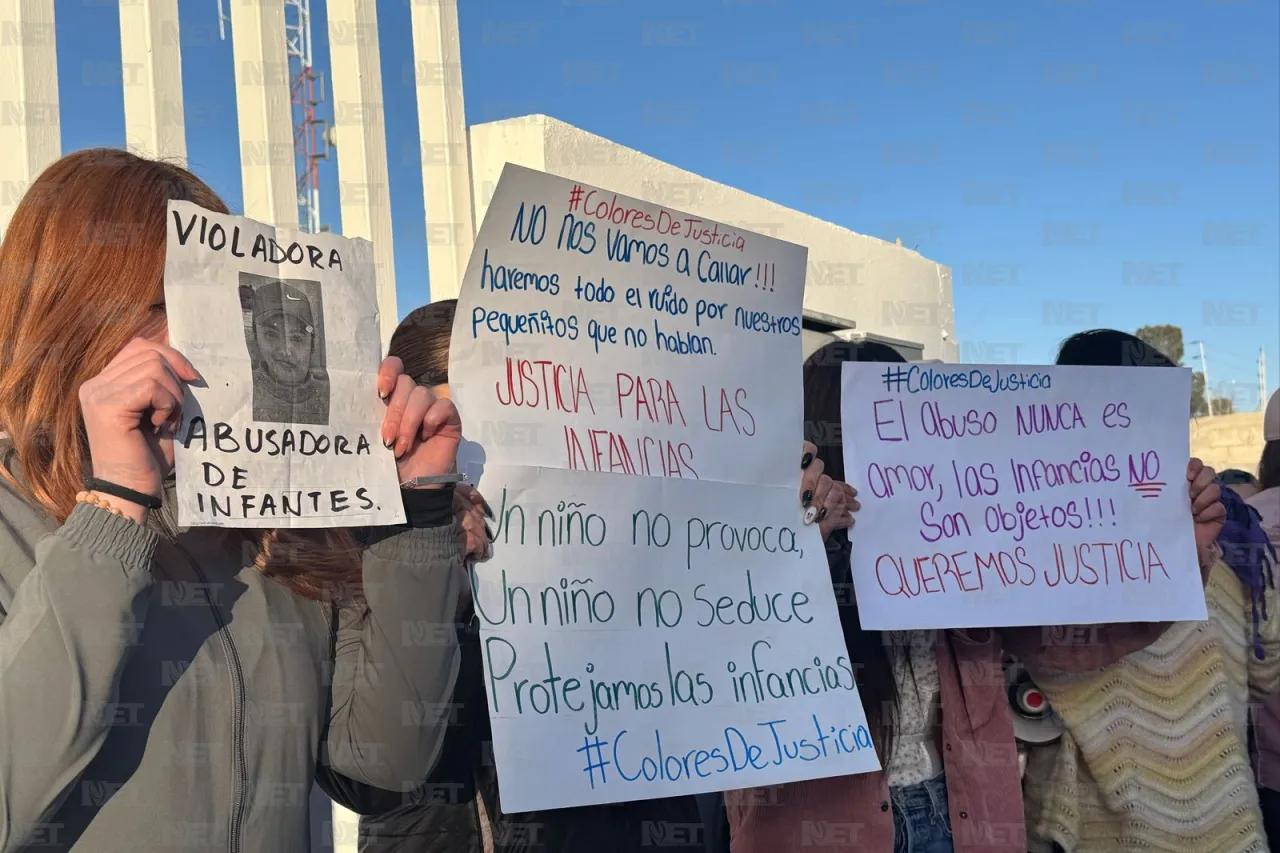 VIOLADORA
ABUSADORA
DE
INFANTES.
#ColoresDeJusticia
NO nos vamos a Callar!!!
haremos todo el ruido por nuestros
pequeñitos que no hablan.
JUSTICIA PARA LAS
INFANCIAS
Un niño no provoca,
Un niño no seduce
Protejamos las infancias
#ColoresDeJusticia
#ColoresDeJusticia
El abuso NUNCA es
amor, las infancias NO
Son objetos!!!
QUEREMOS JUSTICIA
NET